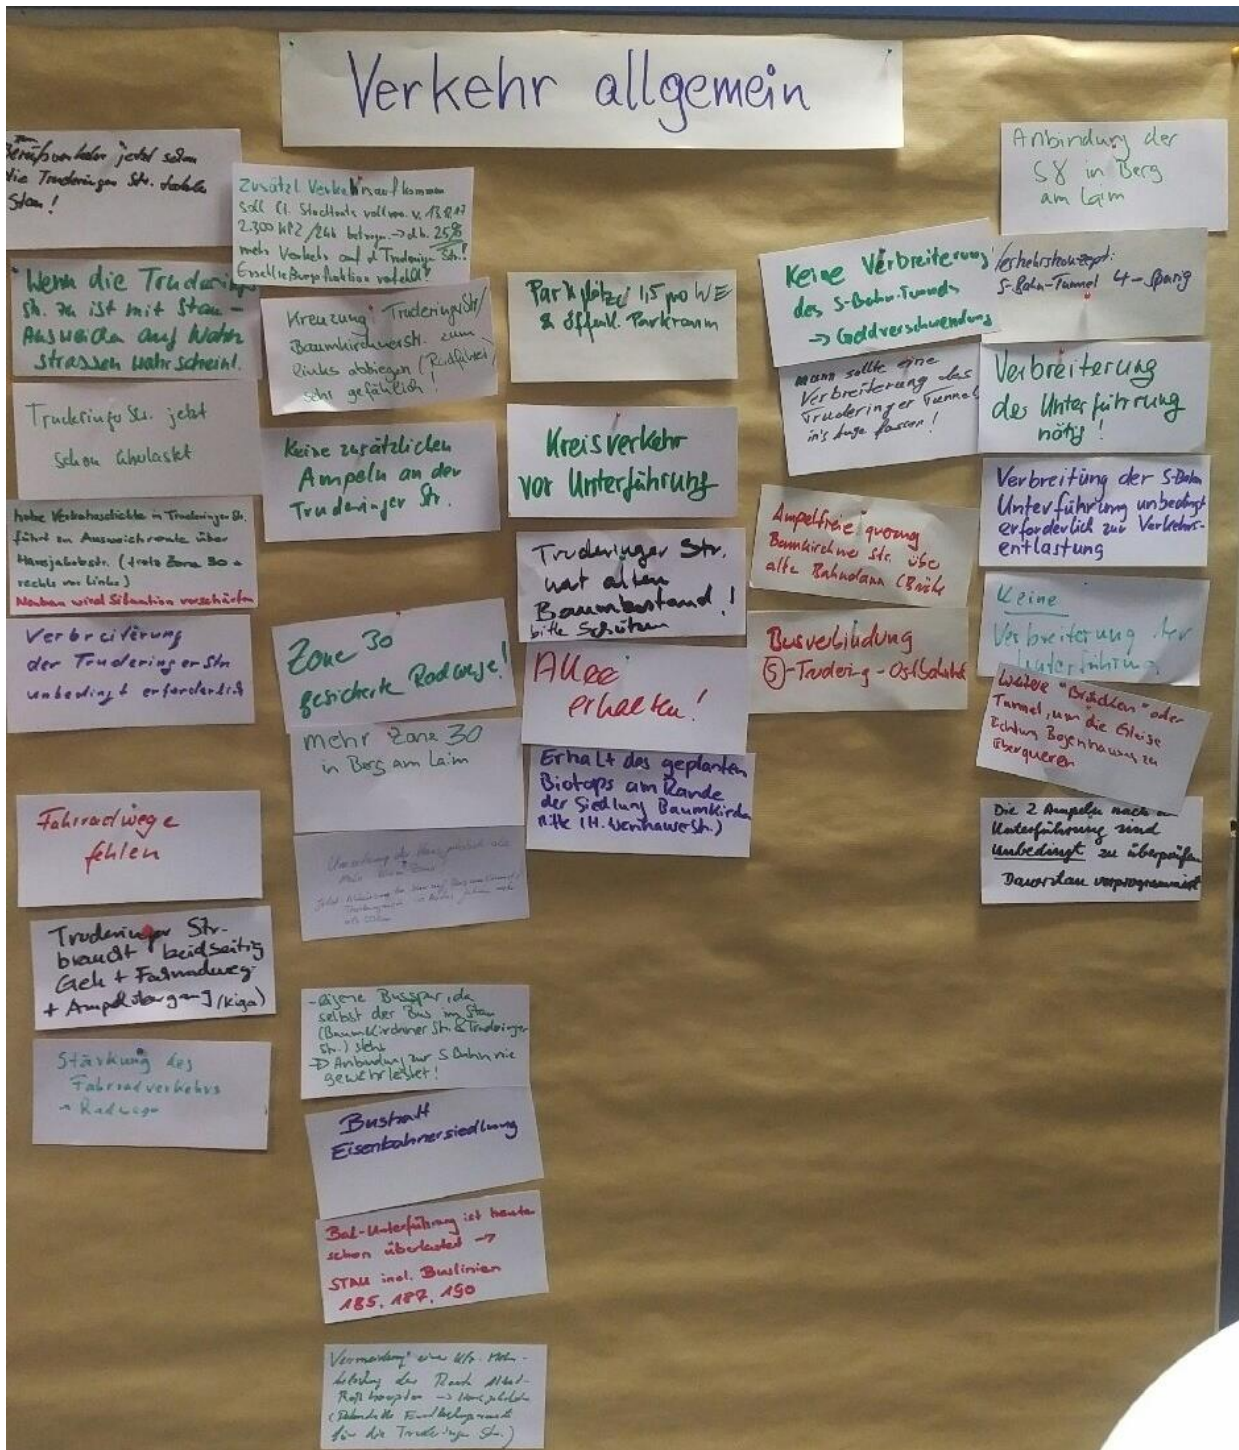 Verkehr allgemein
jetzt schon
die Truderinger Str.
Stau!
Wenn die Truderinger
Str. zu ist mit Stau -
Ausweichen auf Wohn
strassen wahrscheinl.
Truderinger Str. jetzt
schon
hohe Verkehrsdichte in Truderinger Str.
führt zu Ausweichroute über
Hansjakobstr. (trotz Zone 30 +
rechts vor links)
Neubau wird Situation verschärfen
Verbreiterung
der Truderinger Str
unbedingt erforderlich
Fahrradwege
fehlen
Truderinger Str.
braucht beidseitig
Geh + Fahrradweg
+ Ampelübergang (Kiga)
Stärkung des
Fahrradverkehrs
Radwege
Zusätzl. Verkehrsaufkommen
soll lt. Stadtrats vollver. v. 13.12.17
2.300 KFZ/24h betragen → d.h. 25%
mehr Verkehr auf d Truderinger Str.!
Kreuzung Truderinger Str/
Baumkirchnerstr. zum
links abbiegen (Radfahrer)
sehr gefährlich!
Keine zusätzlichen
Ampeln an der
Truderinger Str.
Zone 30
gesicherte Radwege!
mehr Zone 30
in Berg am Laim
- eigene Busspur, da
selbst der Bus im Stau
(Baumkirchner Str. & Truderinger
Str.) steht
→ Anbindung zur S Bahn nie
gewährleistet!
Bushalt
Eisenbahnersiedlung
BaL-Unterführung ist heute
schon überlastet →
STAU incl. Buslinien
185, 187, 190
für die Truderinger Str.)
Parkplätze 1,5 pro WE
& öffentl. Parkraum
Kreisverkehr
vor Unterführung
Truderinger Str.
hat alten
Baumbestand!
bitte Schützen
Allee
erhalten!
Erhalt des geplanten
Biotops am Rande
der Siedlung Baumkirchen
Mitte
Keine Verbreiterung
des S-Bahn-Tunnels
→ Geldverschwendung
mann sollte eine
Verbreiterung des
Truderinger Tunnels
in's Auge fassen!
Ampelfreie
Baumkirchner Str. über
alte Bahndamm
Busverbindung
Ⓢ-Trudering - Ostbahnhof
Anbindung der
S8 in Berg
am Laim
Verkehrskonzept:
S-Bahn-Tunnel 4-spurig
Verbreiterung
der Unterführung
nötig!
Verbreitung der S-Bahn
Unterführung unbedingt
erforderlich zur Verkehrs-
entlastung
Keine
Verbreiterung der
Unterführung
Weitere "Brücken" oder
Tunnel, um die Gleise
Richtung Bogenhausen zu
überqueren
Die 2 Ampeln nach
Unterführung sind
unbedingt zu überprüfen
Dauerstau vorprogrammiert